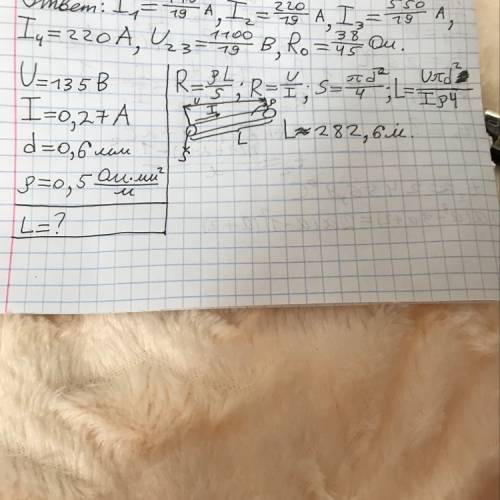 Ответ: I₁ = 110/19 А, I₂ = 220/19 А, I₃ = 550/19 А,
I₄ = 220 А, U₂₃ = 1100/19 В, R₀ = 38/45 Ом.
U = 135 В
I = 0,27 А
d = 0,6 мм
ρ = 0,5 Ом·мм²/м
L = ?
R = ρL/S ; R = U/I ; S = πd²/4 ; L = Uπd²/Iρ4
I
L
L ≈ 282,6 м.